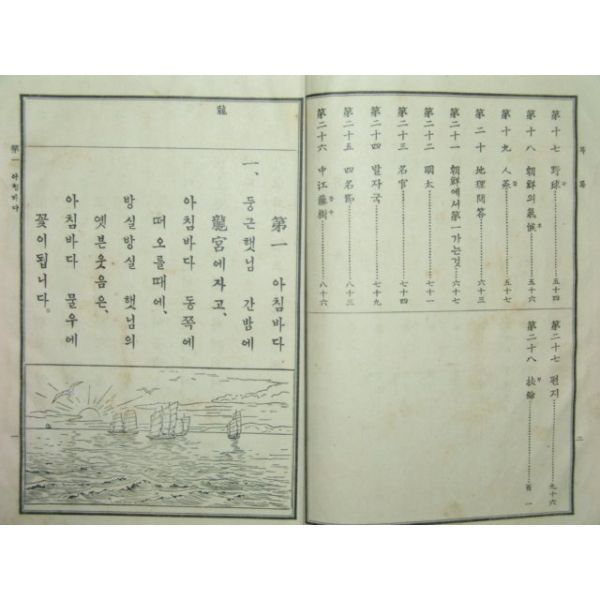 目錄
第十七 野球 五十四
第十八 朝鮮의氣候 五十六
第十九 人蔘 五十七
第二十 地理問答 六十三
第二十一 朝鮮에서第一가는것 六十七
第二十二 明太 七十一
第二十三 名官 七十四
第二十四 발자국 七十九
第二十五 四名節 八十三
第二十六 中江藤樹 八十六
第二十七 편지 九十六
第二十八 扶餘 百一
二
龍
第一 아침바다
一、둥근햇님 간밤에
龍宮에자고、
아침바다 동쪽에
떠오를때에、
방실방실 햇님의
엣븐웃음은、
아침바다 물우에
꽃이됩니다。
第一 아침바다
一